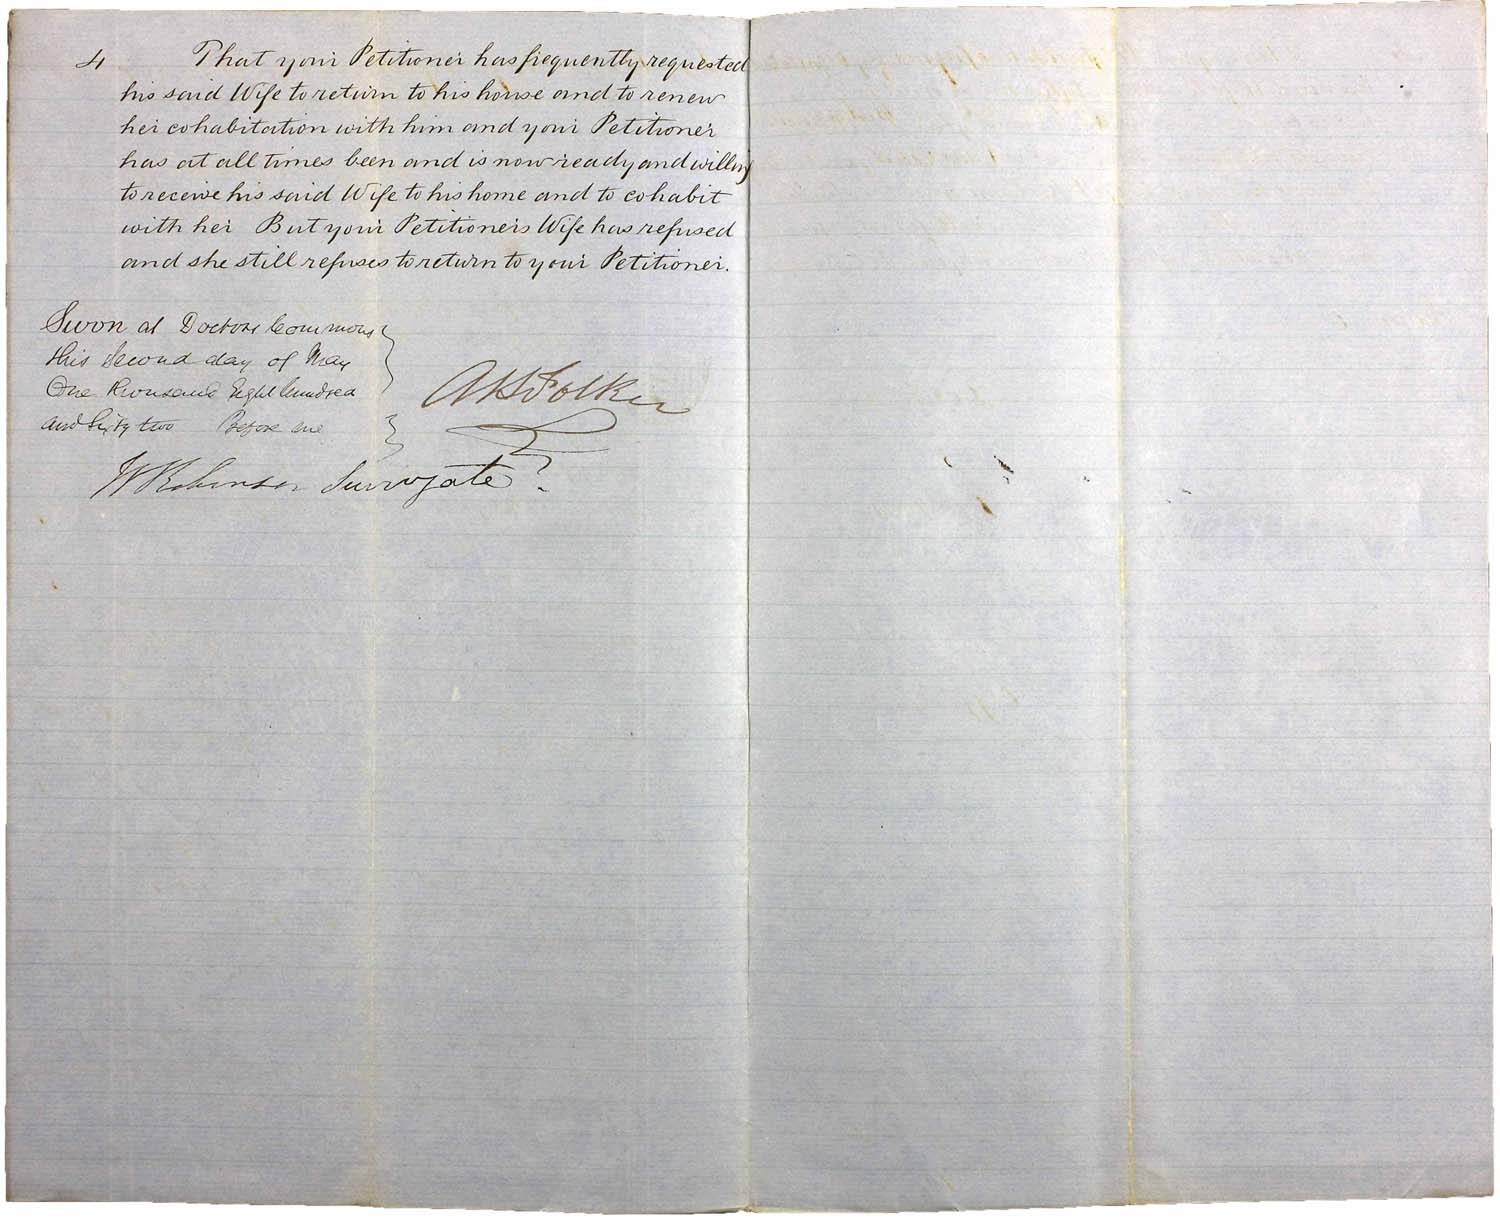 4 That your Petitioner has frequently requested
his said Wife to return to his house and to renew
her cohabitation with him and your Petitioner
has at all times been and is now ready and willing
to receive his said Wife to his home and to cohabit
with her But your Petitioners Wife has refused
and she still refuses to return to your Petitioner.
Sworn at Doctors Commons
this Second day of May
One thousand Eight hundred
and Sixty two Before me
A H Folker
W Robinson Surrogate